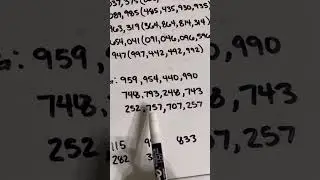 089,985(485,435,930,935
963,319(364,864,814,314)
654,041(091,046,096,596
947(997,442,492,992)
: 959,954,440,990
748,793,248,743
252,757,707,257
115 833
282